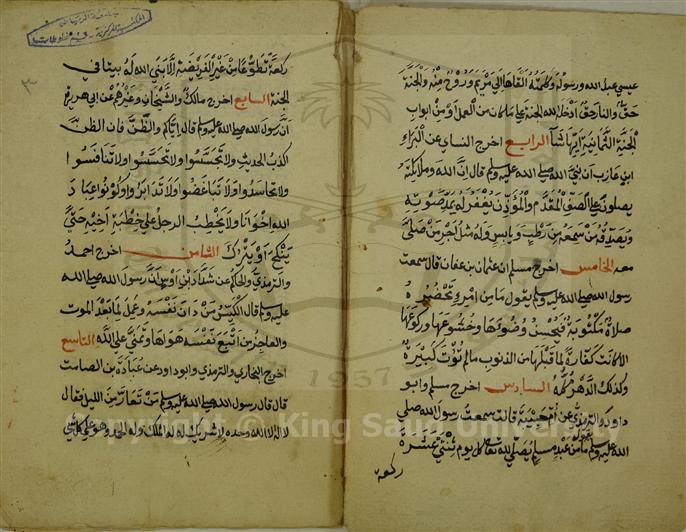 عيسى عبد الله ورسوله وكلمته القاها الى مريم وروح منه والجنة
حق والنار حق ادخله الله الجنة على ما كان من العمل من ابواب
الجنة الثمانية ايها شآ الرابع اخرج النساى عن البراء
ابن عازب ان نبى الله صلى الله عليه وسلم قال ان الله وملائكته
يصلون على الصف المقدم والمؤذن يغفر له بمد صوته
ويصدقه من سمعه من رطب ويابس وله مثل اجر من صلى
معه الخامس اخرج مسلم ان عثمان بن عفان قال سمعت
رسول الله صلى الله عليه وسلم يقول ما من امرء تحضره
صلاة مكتوبة فيحسن وضوئها وخشوعها وركوعها
الا كانت كفارة لما قبلها من الذنوب ما لم تؤت كبيرة
وكذلك الدهر كله السادس اخرج مسلم وابو
داود والترمذي عن ام حبيبة قالت سمعت رسول الله صلى
الله عليه وسلم يقول ما من عبد مسلم يصلى لله تعا كل يوم ثنتى عشرة
ركعة
ركعة تطوعا من غير الفريضة الا بنى الله له بيتا في
الجنة السابع اخرج مالك والشيخان وغيرهم عن ابى هريرة
ان رسول الله صلى الله عليه وسلم قال اياكم والظن فان الظن
اكذب الحديث ولا تحسسوا ولا تجسسوا ولا تنافسوا
ولا تحاسدوا ولا تباغضوا ولا تدابروا وكونوا عباد
الله اخوانا ولا يخطب الرجل على خطبة اخيه حتى
ينكح او يترك الثامن اخرج احمد
والترمذي والحاكم عن شداد بن اوس ان رسول الله صلى الله
عليه وسلم قال الكيس من دان نفسه وعمل لما بعد الموت
والعاجز من اتبع نفسه هواها وتمنى على الله التاسع
اخرج البخاري والترمذي وابو داود عن عبادة بن الصامت
قال قال رسول الله صلى الله عليه وسلم من تعار من الليل فقال
لا اله الا الله وحده لا شريك له له الملك وله الحمد وهو على كل شي
٣
1957
Copyright © King Saud University